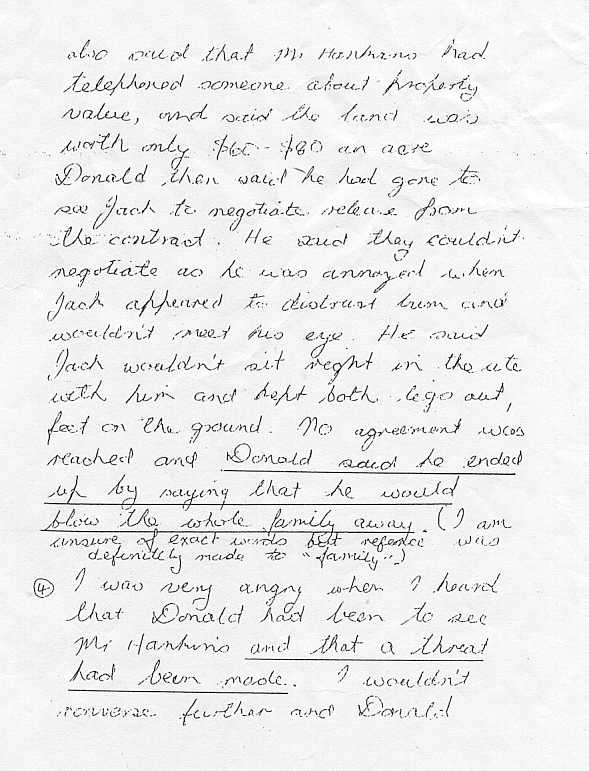 also said that Mr Hankins had
telephoned someone about property
value, and said the land was
worth only $60-$80 an acre
Donald then said he had gone to
see Jack to negotiate release from
the contract. He said they couldn't
negotiate as he was annoyed when
Jack appeared to distrust him and
wouldn't meet his eye. He said
Jack wouldn't sit right in the ute
with him and kept both legs out,
feet on the ground. No agreement was
reached and Donald said he ended
up by saying that he would
blow the whole family away. (I am
unsure of exact words but was
definitely made to "family".)
④ I was very angry when I heard
that Donald had been to see
Mr Hankins and that a threat
had been made. I wouldn't
converse further and Donald